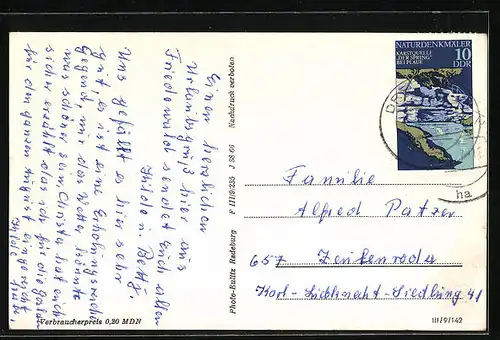 Einen herzlichen
Urlaubsgruß hier aus
Friedrichroda sendet Euch allen
Hilde u. Betty.
Uns gefällt es hier sehr
gut, es ist eine Erholungsreiche
Gegend, nur das Wetter könnte
was schöner sein. Christa hat auch
sicher erzählt das ich für die Gaben
für den ganzen
Hilde
NATURDENKMÄLER
KARSTQUELLE
„DER SPRING“
BEI PLAUE
10
DDR
ha
Familie
Alfred Patzer
657 Zeulenroda
Karl-Liebknecht-Siedlung 41
Photo-Eulitz Radeburg F III/9/235 J 58 66 Nachdruck verboten
Verbraucherpreis 0,20 MDN
III/9/142